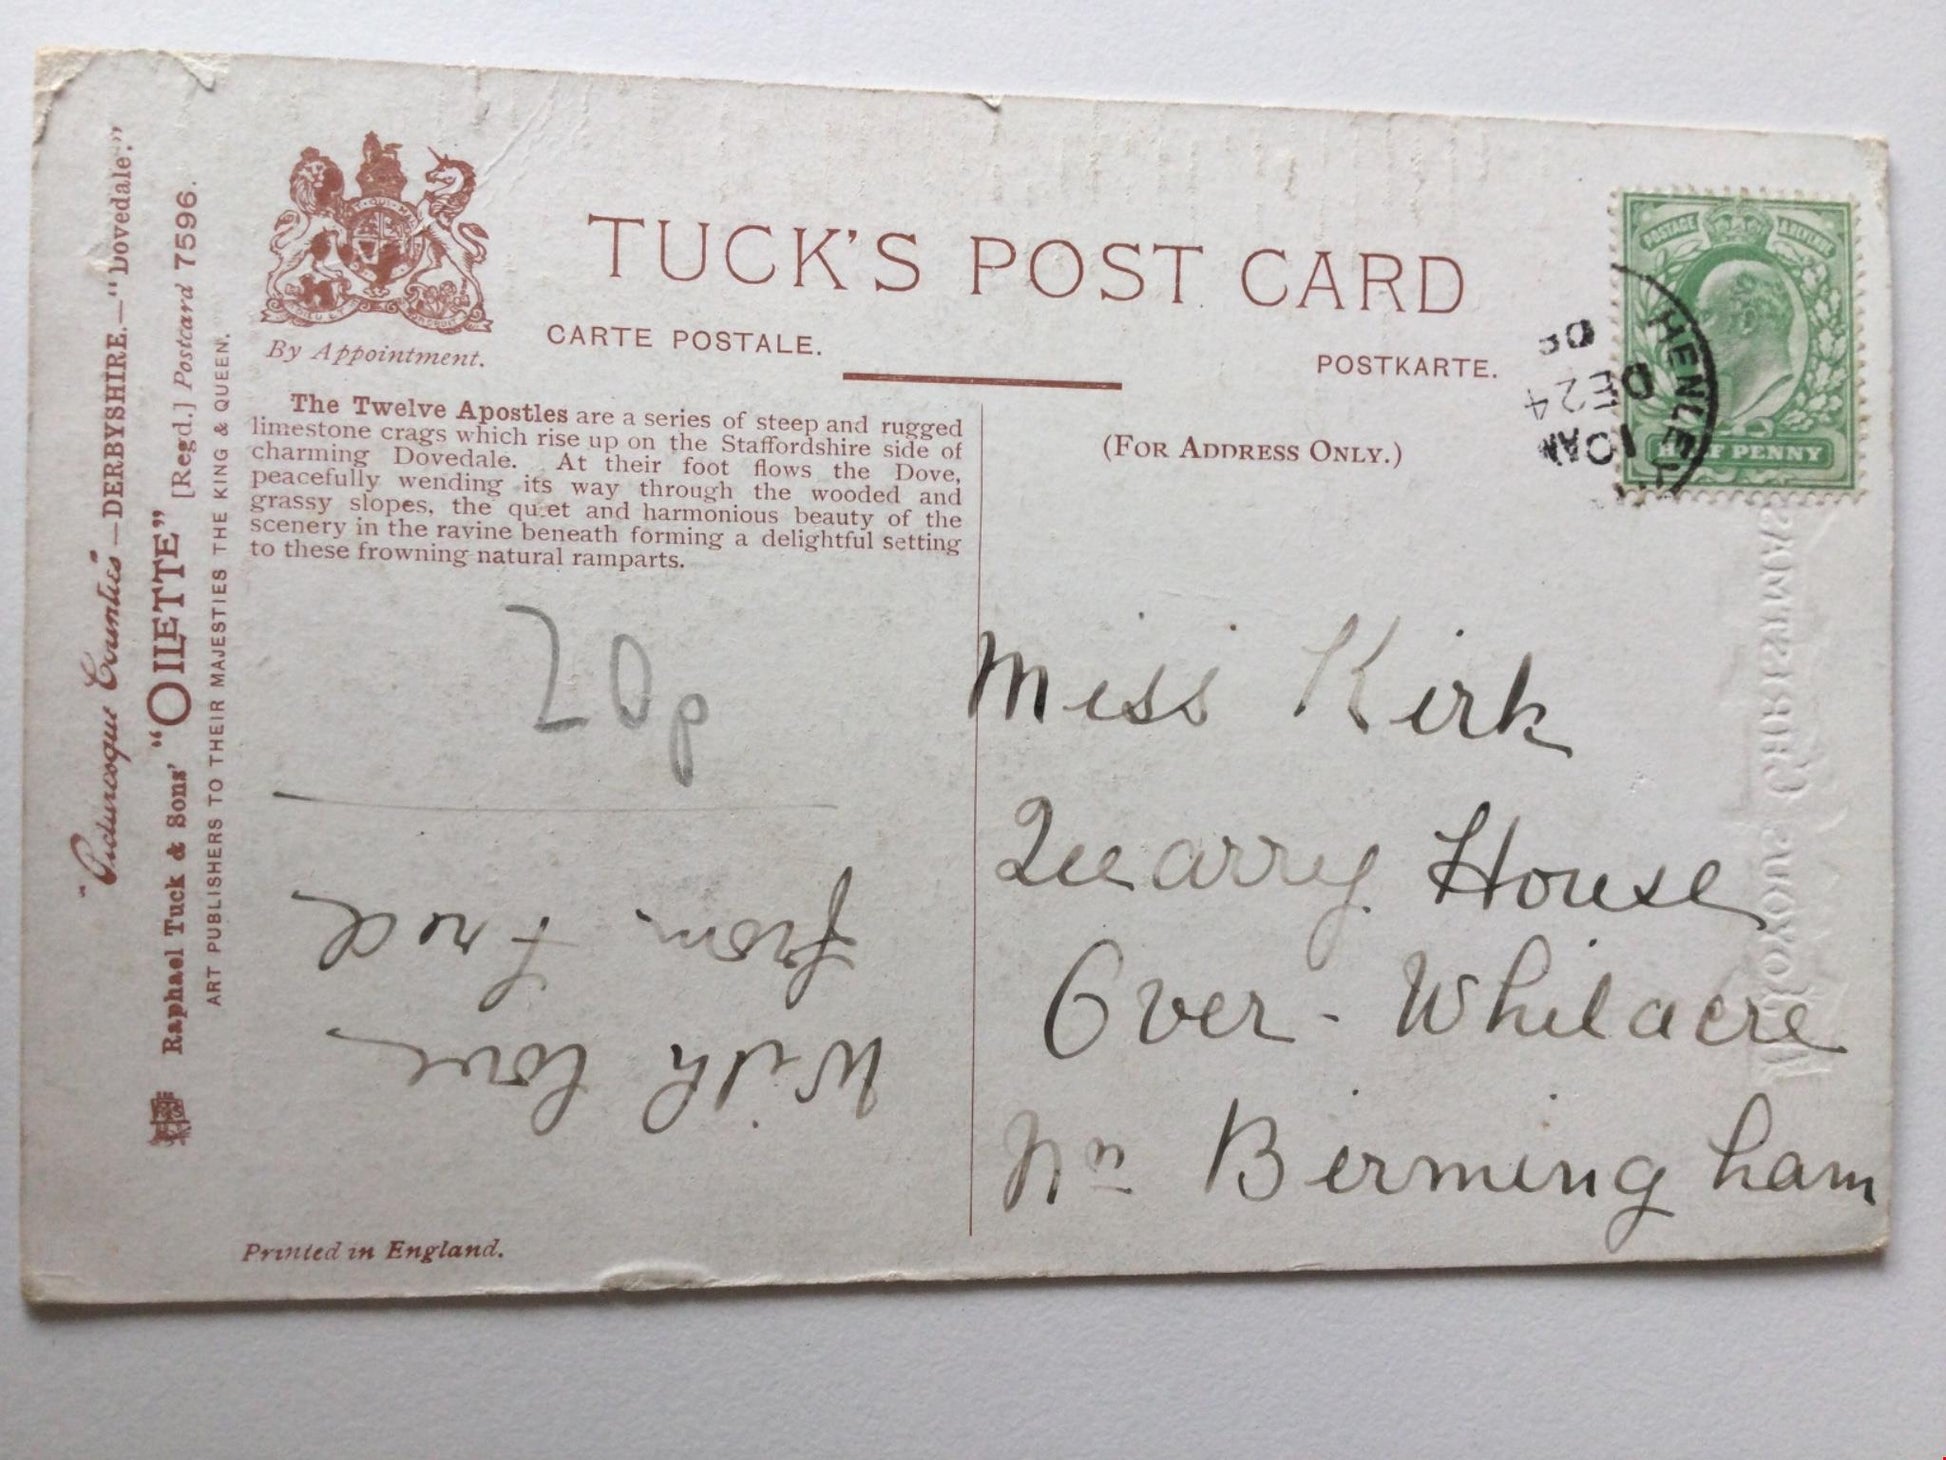 "Picturesque Counties"—DERBYSHIRE.—"Dovedale."
Raphael Tuck & Sons' "OILETTE" [Regd.] Postcard 7596.
ART PUBLISHERS TO THEIR MAJESTIES THE KING & QUEEN.
By Appointment.
TUCK'S POST CARD
CARTE POSTALE.
POSTKARTE.
The Twelve Apostles are a series of steep and rugged
limestone crags which rise up on the Staffordshire side of
charming Dovedale. At their foot flows the Dove,
peacefully wending its way through the wooded and
grassy slopes, the quiet and harmonious beauty of the
scenery in the ravine beneath forming a delightful setting
to these frowning natural ramparts.
(FOR ADDRESS ONLY.)
POSTAGE & REVENUE
HALF PENNY
HENLEY
10AM
DE 24
08
20p
With love
from Fred
Miss Kirk
Quarry House
Over-Whitacre
Nr Birmingham
WITH JOYOUS CHRISTMAS
Printed in England.